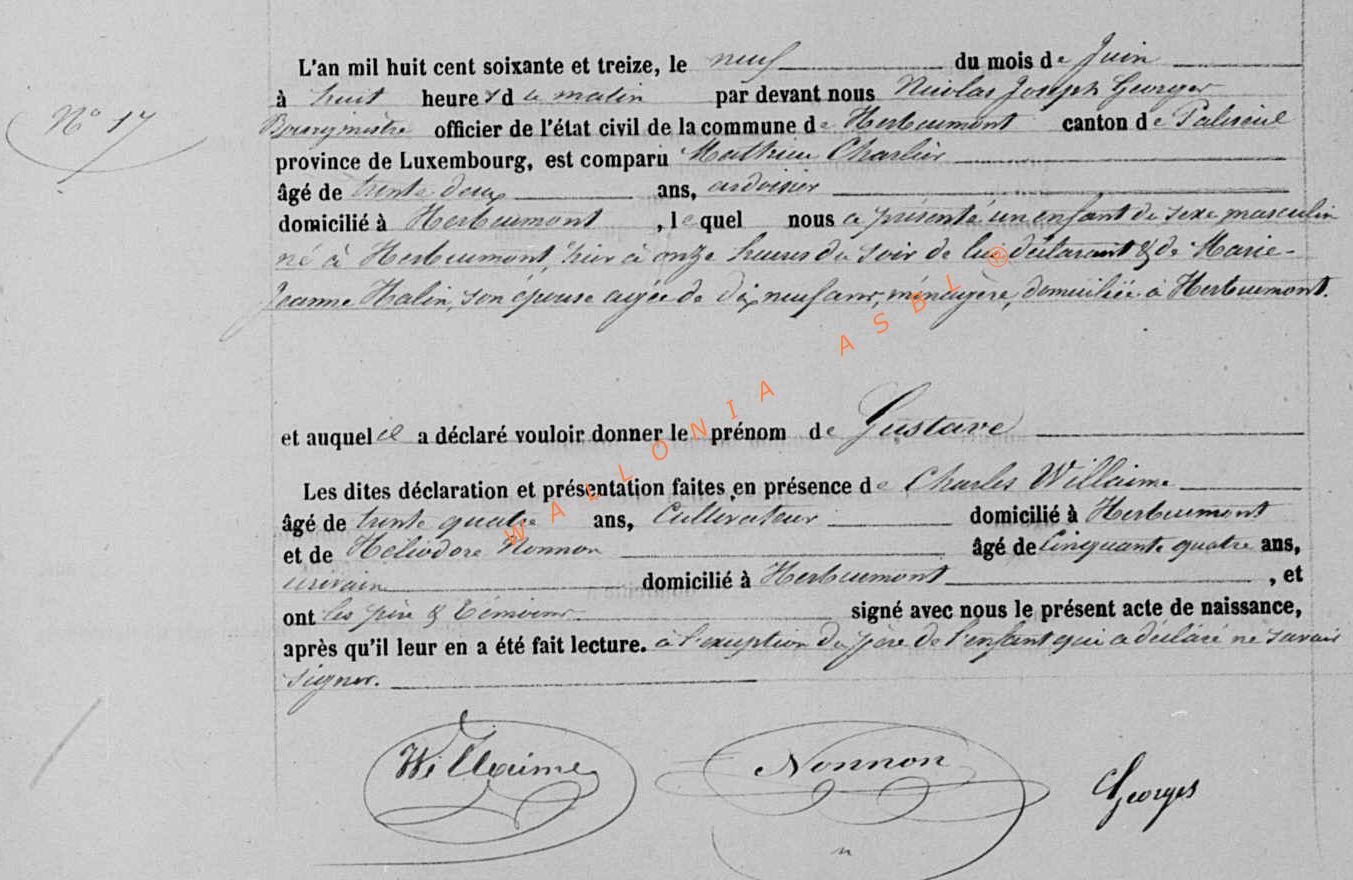 L'an mil huit cent soixante et treize, le neuf du mois de Juin
N° 17
à huit heures du matin par devant nous Nicolas Joseph Georges
Bourgmestre officier de l'état civil de la commune de Herbeumont canton de Paliseul
province de Luxembourg, est comparu Mathieu Charlier
âgé de trente deux ans, ardoisier
domicilié à Herbeumont, lequel nous a présenté un enfant du sexe masculin
né à Herbeumont, hier à onze heures du soir de lui déclarant & de Marie-
Jeanne Halin, son épouse agée de dix neuf ans, ménagère, domiciliée à Herbeumont.
WALLONIA ASBL ®
et auquel il a déclaré vouloir donner le prénom de Gustave
Les dites déclaration et présentation faites en présence de Charles Willaime
âgé de trente quatre ans, Cultivateur domicilié à Herbeumont
et de Héliodore Nonnon âgé de Cinquante quatre ans,
domicilié à Herbeumont, et
ont les père & témoins signé avec nous le présent acte de naissance,
après qu'il leur en a été fait lecture. à l'exception du père de l'enfant qui a déclaré ne savoir
signer.
Willaime Nonnon Georges